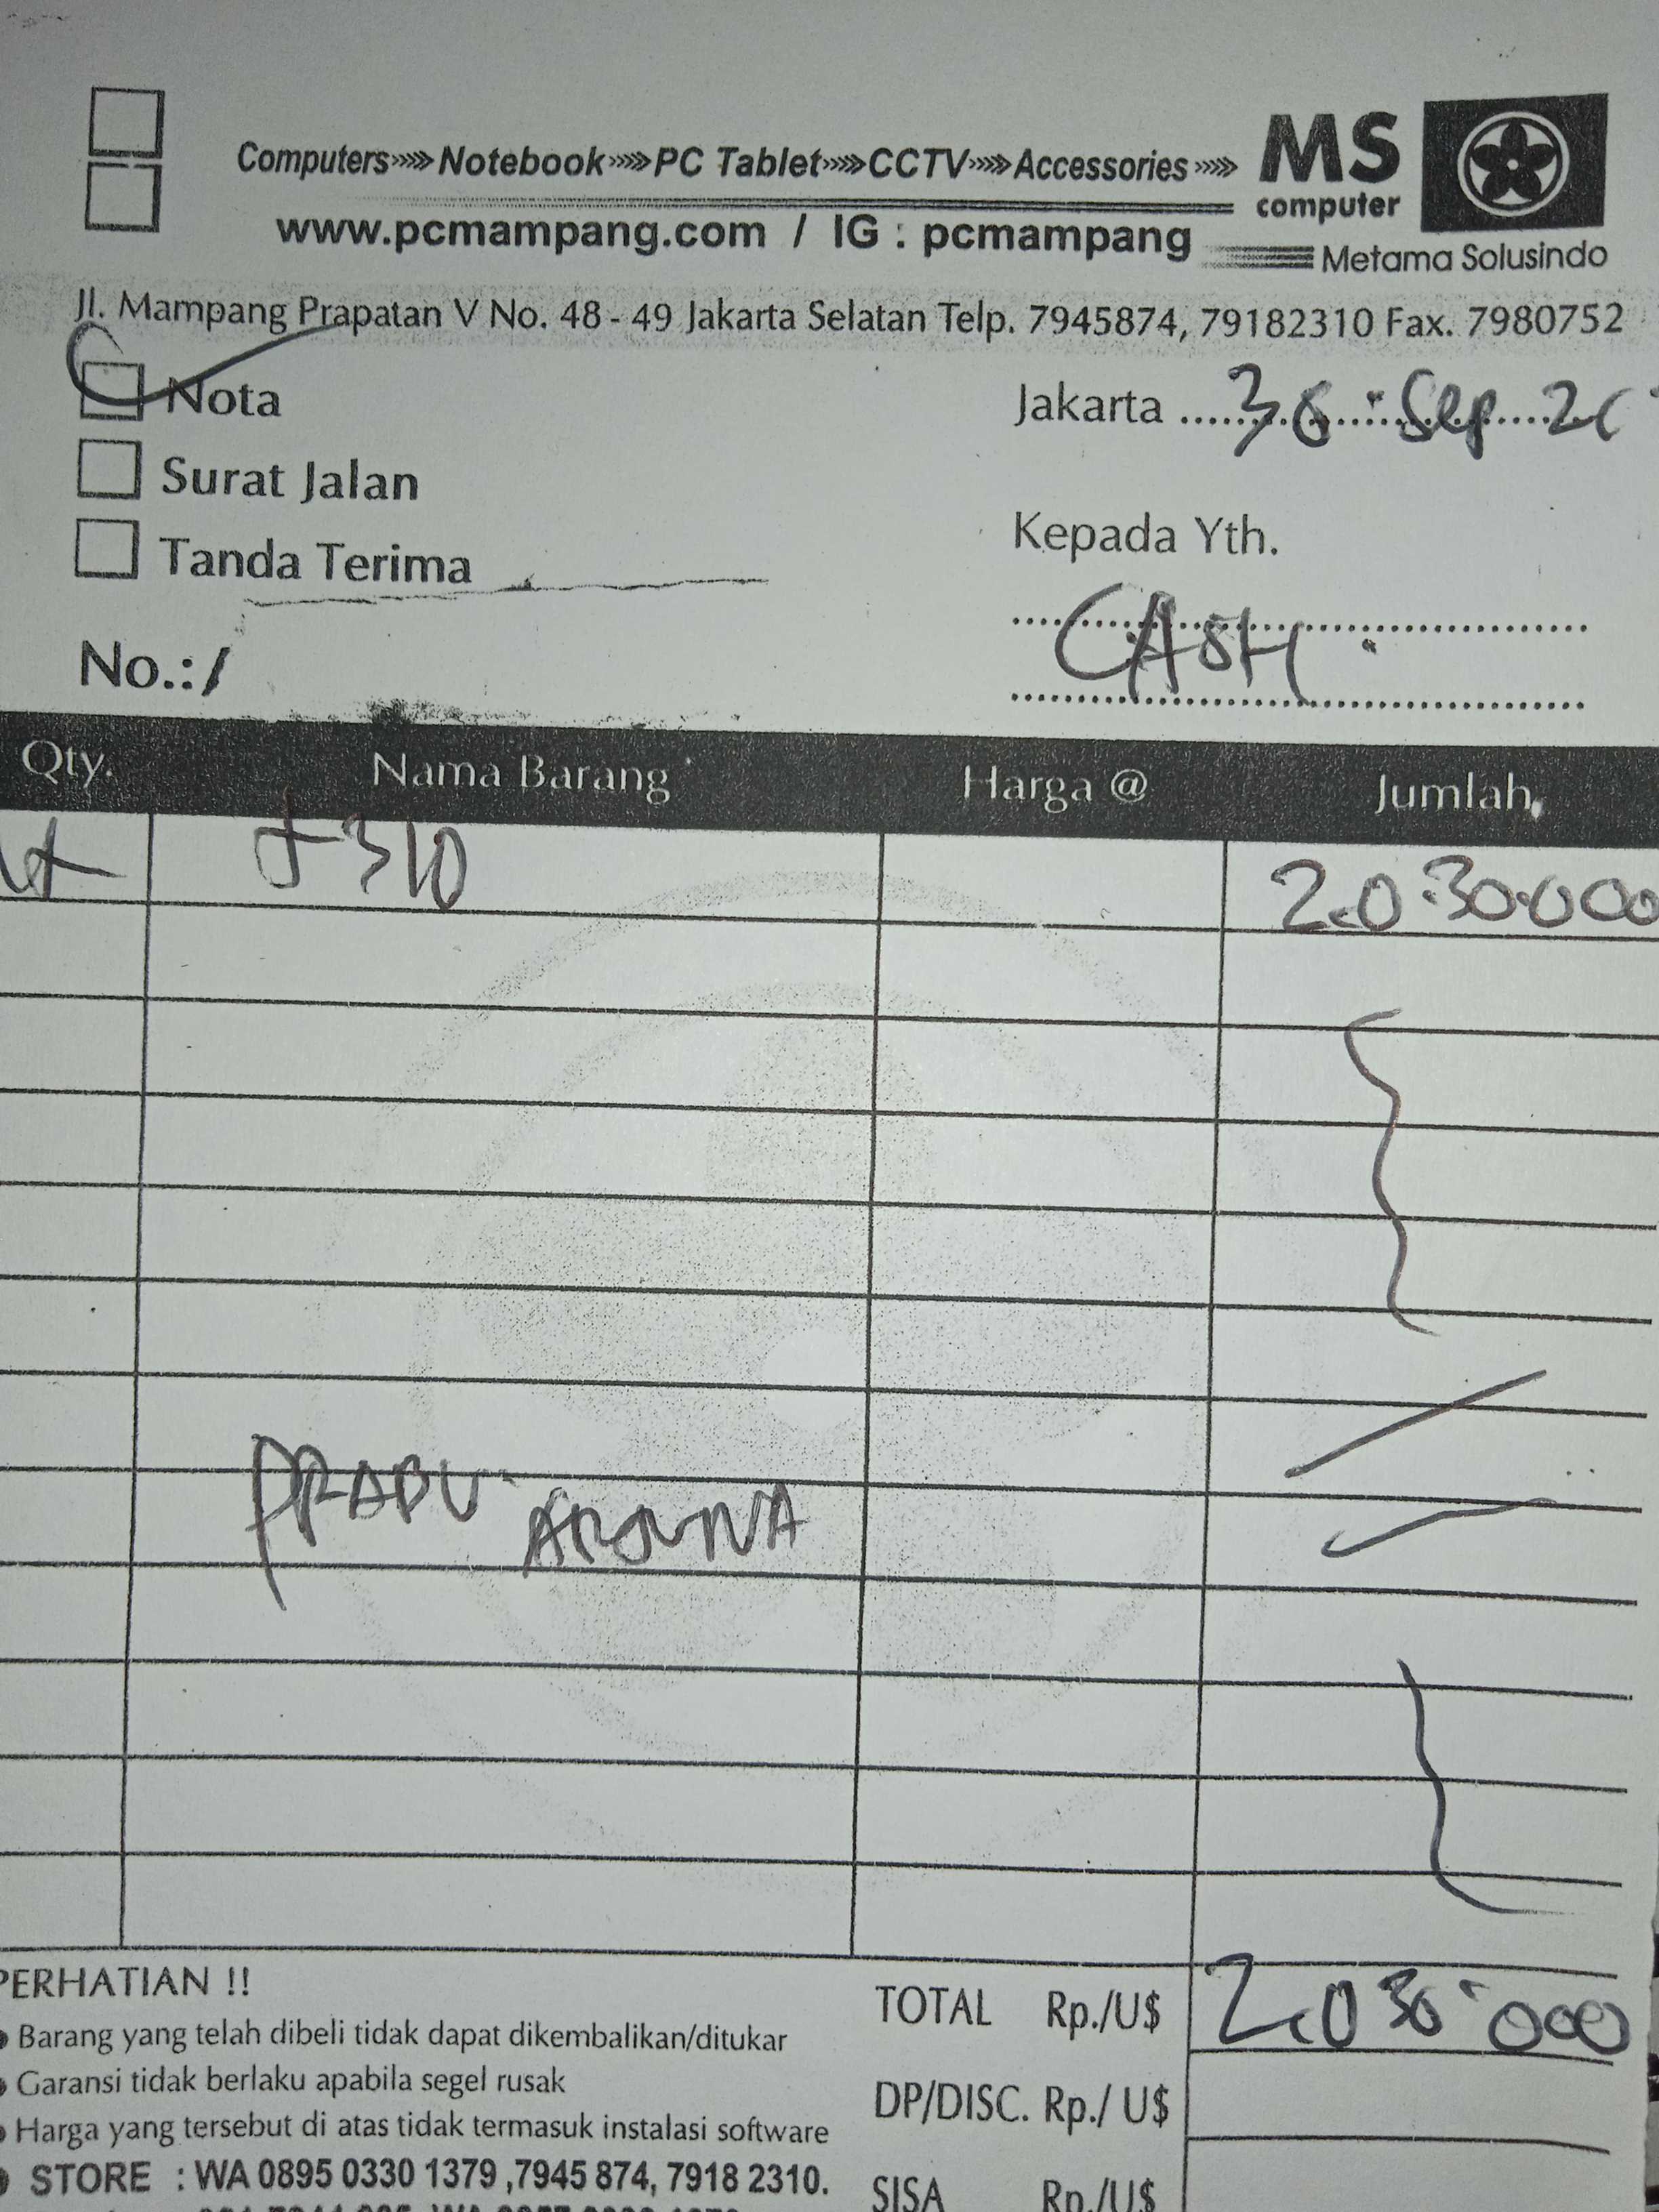 Computers Notebook PC Tablet CCTV Accessories
MS
computer
www.pcmampang.com / IG : pcmampang
Metama Solusindo
Jl. Mampang Prapatan V No. 48 - 49 Jakarta Selatan Telp. 7945874, 79182310 Fax. 7980752
Nota
Jakarta ..... Sep
Surat Jalan
Kepada Yth.
Tanda Terima
CASH
No.:/
Qty. Nama Barang Harga @ Jumlah
310 2.030.000
PRABU
PERHATIAN !!
Barang yang telah dibeli tidak dapat dikembalikan/ditukar
Garansi tidak berlaku apabila segel rusak
Harga yang tersebut di atas tidak termasuk instalasi software
STORE : WA 0895 0330 1379 ,7945 874, 7918 2310.
TOTAL Rp./U$ 2.030.000
DP/DISC. Rp./ U$
SISA Rp./U$